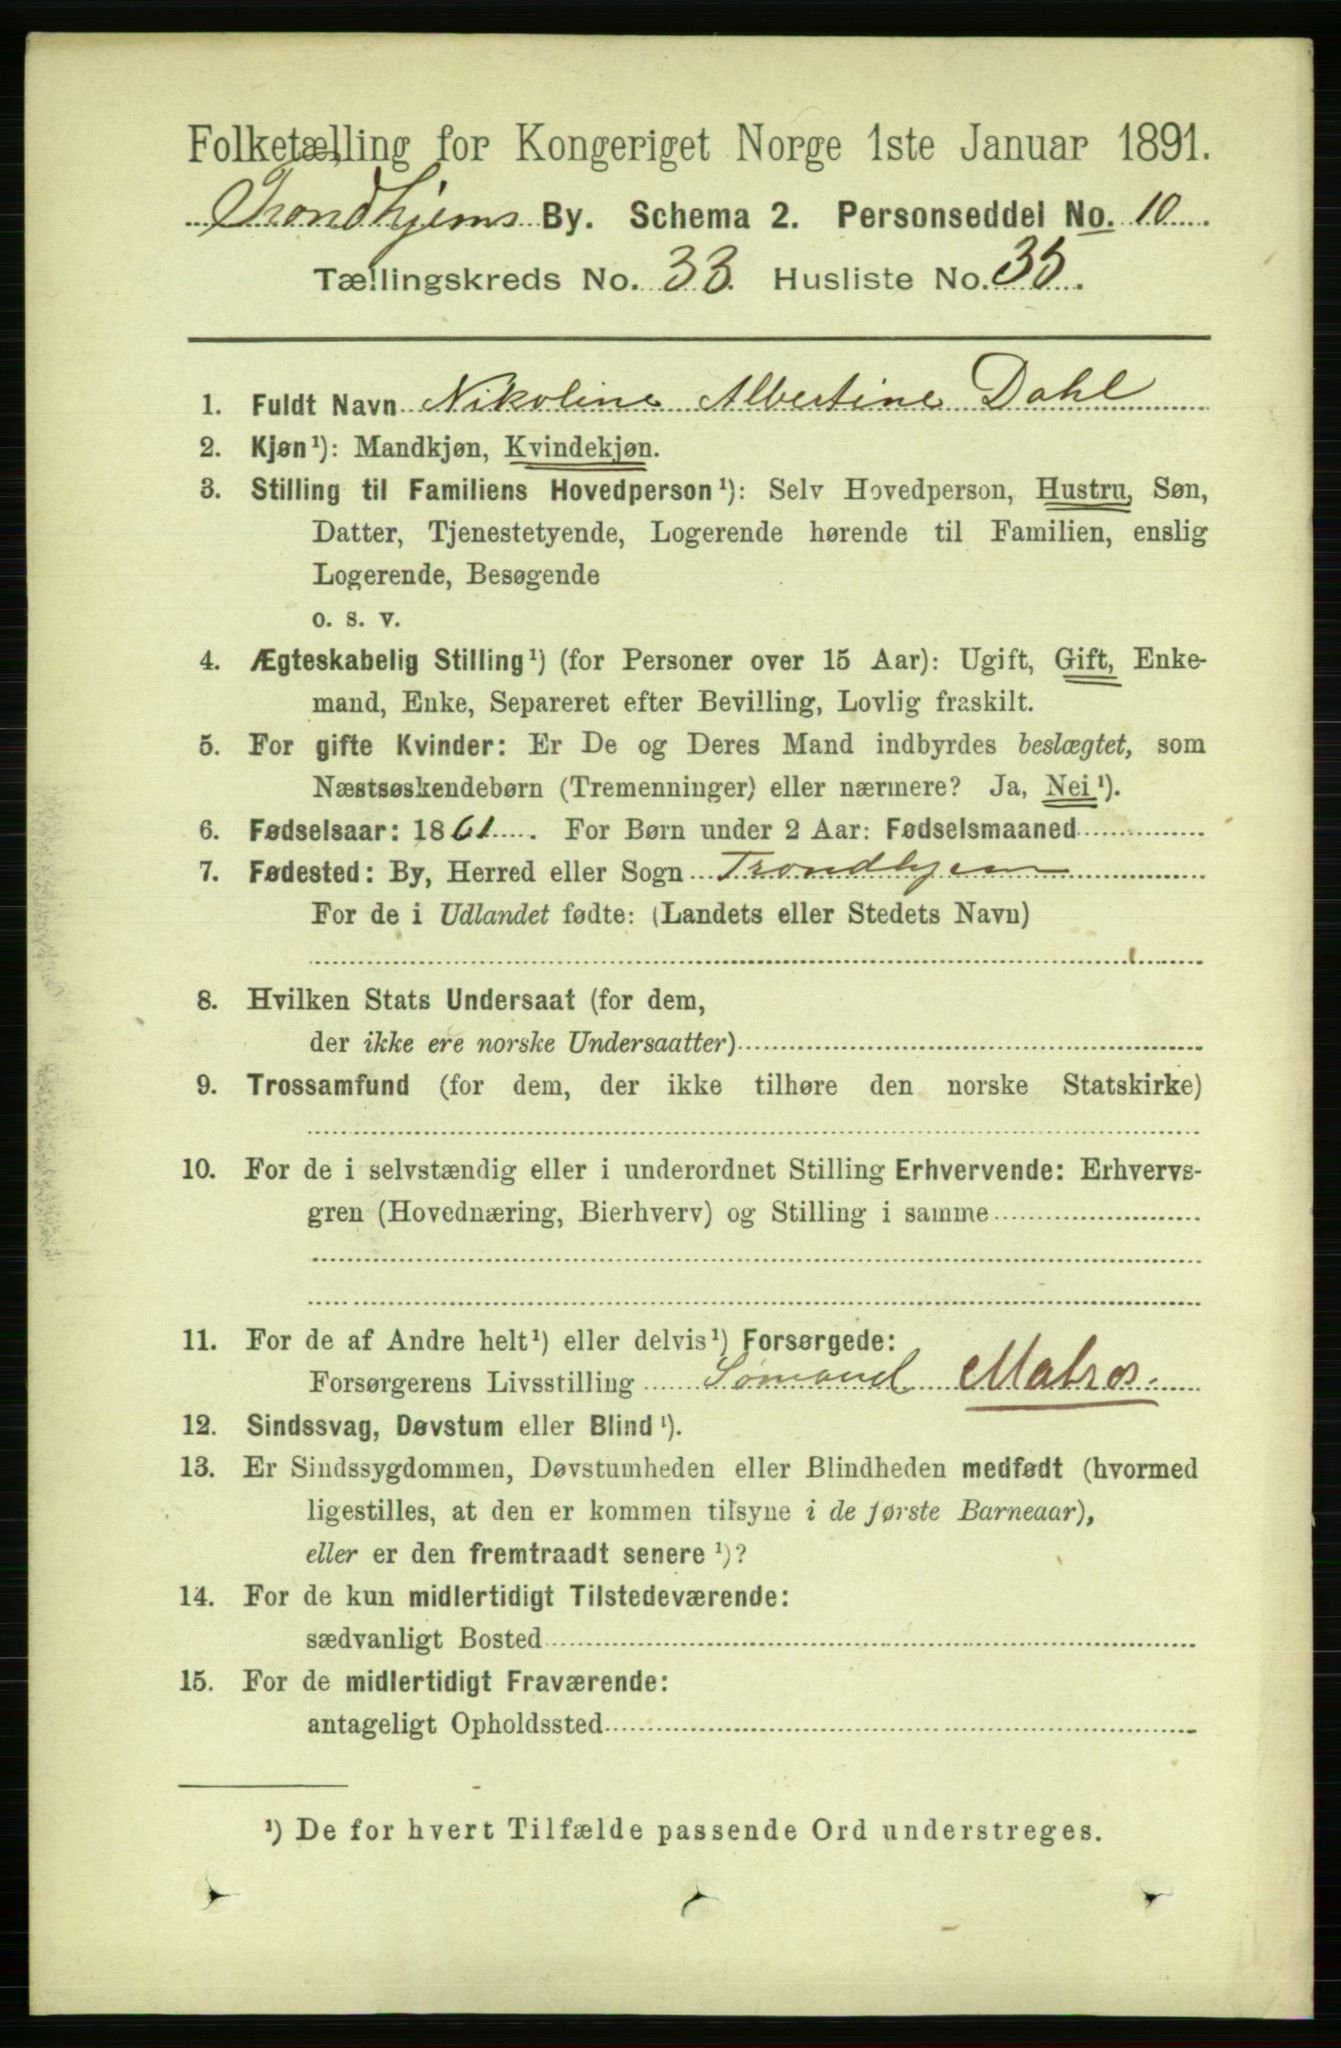 Folketælling for Kongeriget Norge 1ste Januar 1891.
Trondhjems By. Schema 2. Personseddel No. 10
Tællingskreds No. 33. Husliste No. 35.
1. Fuldt Navn Nikoline Albertine Dahl
2. Kjøn¹): Mandkjøn, Kvindekjøn.
3. Stilling til Familiens Hovedperson¹): Selv Hovedperson, Hustru, Søn,
Datter, Tjenestetyende, Logerende hørende til Familien, enslig
Logerende, Besøgende
o. s. v.
4. Ægteskabelig Stilling¹) (for Personer over 15 Aar): Ugift, Gift, Enke-
mand, Enke, Separeret efter Bevilling, Lovlig fraskilt.
5. For gifte Kvinder: Er De og Deres Mand indbyrdes beslægtet, som
Næstsøskendebørn (Tremenninger) eller nærmere? Ja, Nei¹).
6. Fødselsaar: 1861. For Børn under 2 Aar: Fødselsmaaned
7. Fødested: By, Herred eller Sogn Trondhjem
For de i Udlandet fødte: (Landets eller Stedets Navn)
8. Hvilken Stats Undersaat (for dem,
der ikke ere norske Undersaatter)
9. Trossamfund (for dem, der ikke tilhøre den norske Statskirke)
10. For de i selvstændig eller i underordnet Stilling Erhvervende: Erhvervs-
gren (Hovednæring, Bierhverv) og Stilling i samme
11. For de af Andre helt¹) eller delvis¹) Forsørgede:
Forsørgerens Livsstilling Sømand Matros.
12. Sindssvag, Døvstum eller Blind¹).
13. Er Sindssygdommen, Døvstumheden eller Blindheden medfødt (hvormed
ligestilles, at den er kommen tilsyne i de første Barneaar),
eller er den fremtraadt senere¹)?
14. For de kun midlertidigt Tilstedeværende:
sædvanligt Bosted
15. For de midlertidigt Fraværende:
antageligt Opholdssted
¹) De for hvert Tilfælde passende Ord understreges.